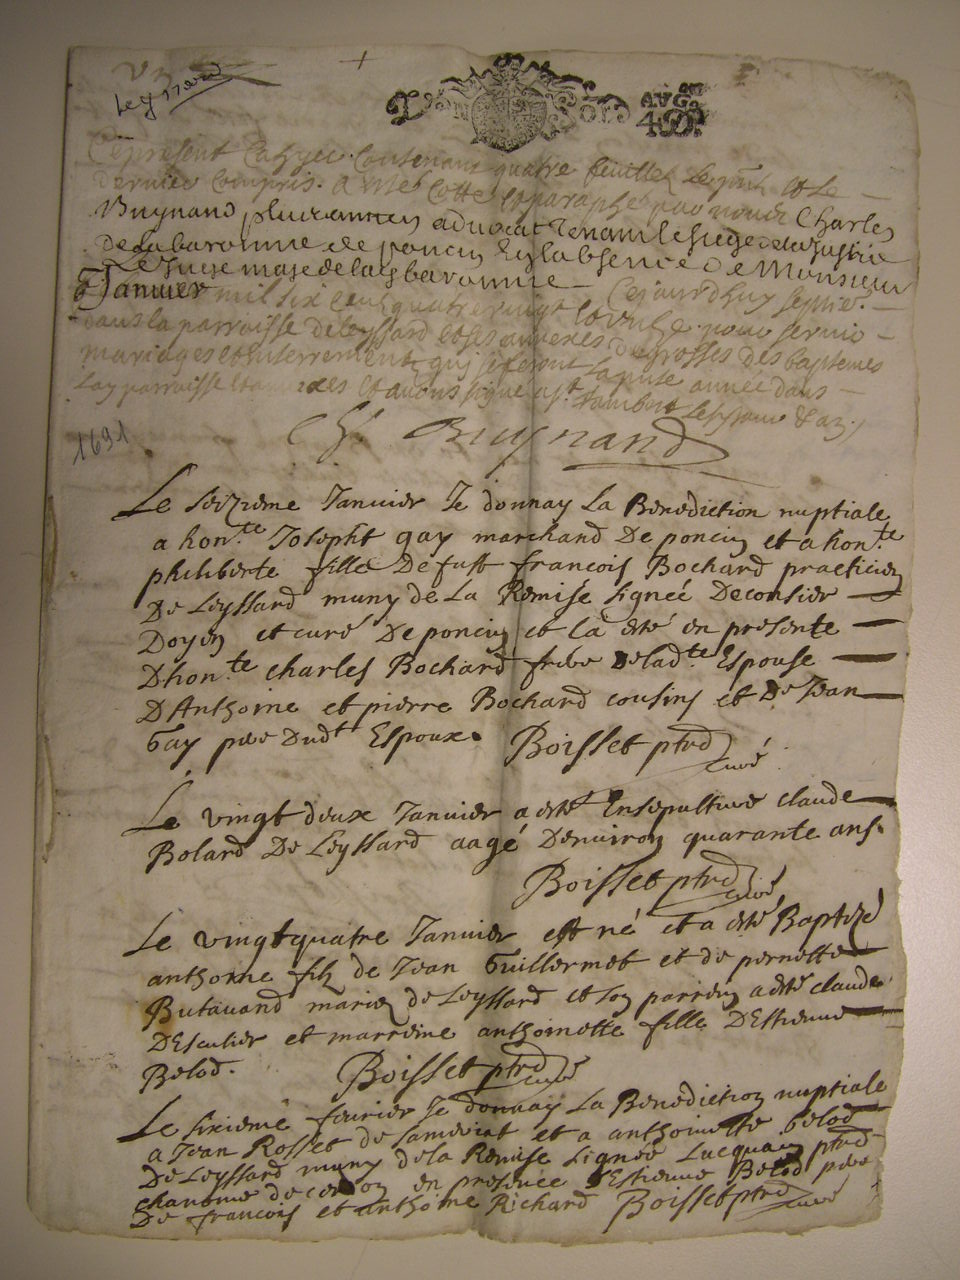 Leyssard
AUG
Ce present Cahyer Contenant quatre feuillez le pnt et le
dernier Compris. a este Cotté et paraphé par nous Charles
Buynand plus ancien advocat tenant le siege de la Justice
de la baronnie de poncin En labsence De Monsieur
Le Juge maje de lad baronnie
Janvier mil six cent quatre vingt Cejourdhuy
dans la parroisse de leyssard et ses annexes des baptemes
mariages et enterrements quy se feront la pnte année dans
lad parroisse et annexes et avons signé
1691
Ch. Buynand
Le seizieme Janvier Je donnay La Benediction nuptiale
a hon.te Josepht gay marchand De poncin et a hon.te
philiberte fille De fust francois Bochard practicien
De Leyssard muny de La Remise signeé De
Doyen et curé De poncin et la esté en presente
Dhon.te charles Bochard frere De lad.te Espouse
D'Anthoine et pierre Bochard cousins et De Jean
Gay pere Dud.t Espoux. Boisset ptrd
curé
Le vingt deux Janvier a esté Ensepulturé claude
Bolard De Leyssard aagé Denviron quarante ans.
Boisset ptrd
curé
Le vingtquatre Janvier est né et a esté Baptizé
anthoine filz de Jean Guillermet et de pernette
Butavand mariez de Leyssard et son parrein a esté claude
DEscutier et marreine anthoinette fille DEstienne
Belod. Boisset ptrd
curé
Le sixieme fevrier Je donnay La Benediction nuptiale
a Jean Rosset de Samoriat et a anthoinette belod
De Leyssard muny de la Remise signeé ptrd
chanoine de cerdon en presence dEstienne Belod pere
De francois et anthoine Richard Boisset ptrd
curé